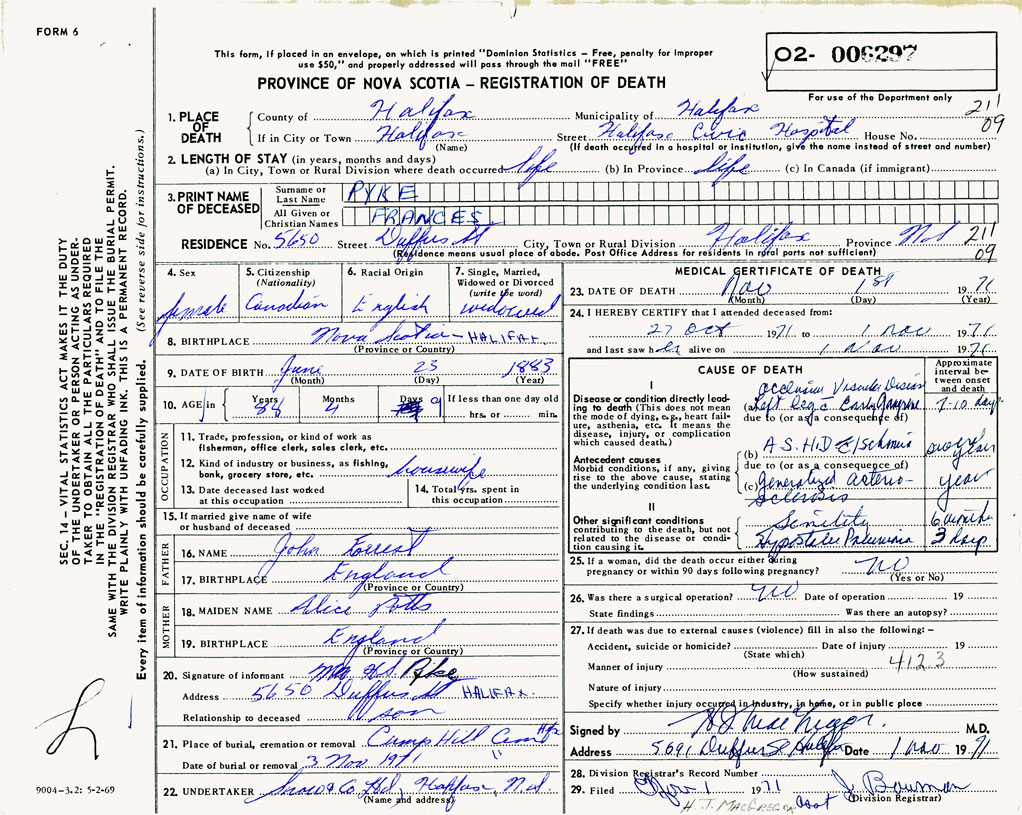 FORM 6
This form, if placed in an envelope, on which is printed "Dominion Statistics – Free, penalty for improper
use $50," and properly addressed will pass through the mail "FREE"
PROVINCE OF NOVA SCOTIA – REGISTRATION OF DEATH
O2- 006297
For use of the Department only
211
09
1. PLACE OF DEATH
County of Halifax Municipality of Halifax
If in City or Town Halifax Street Halifax Civic Hospital House No.
(Name) (If death occurred in a hospital or institution, give the name instead of street and number)
2. LENGTH OF STAY (in years, months and days)
(a) In City, Town or Rural Division where death occurred life (b) In Province life (c) In Canada (if immigrant)
3. PRINT NAME OF DECEASED
Surname or Last Name PYKE
All Given or Christian Names FRANCES
RESIDENCE No. 5650 Street Duffus St City, Town or Rural Division Halifax Province N.S 211
(Residence means usual place of abode. Post Office Address for residents in rural parts not sufficient) 09
4. Sex
female
5. Citizenship (Nationality)
Canadian
6. Racial Origin
English
7. Single, Married, Widowed or Divorced (write the word)
widowed
8. BIRTHPLACE Nova Scotia – HALIFAX
(Province or Country)
9. DATE OF BIRTH June 23 1883
(Month) (Day) (Year)
10. AGE in Years 88 Months 4 Days 9 If less than one day old
hrs. or min.
OCCUPATION
11. Trade, profession, or kind of work as
fisherman, office clerk, sales clerk, etc.
12. Kind of industry or business, as fishing,
bank, grocery store, etc. housewife
13. Date deceased last worked
at this occupation
14. Total yrs. spent in
this occupation
15. If married give name of wife
or husband of deceased
FATHER
16. NAME John Forrest
17. BIRTHPLACE England
(Province or Country)
MOTHER
18. MAIDEN NAME Alice Potts
19. BIRTHPLACE England
(Province or Country)
20. Signature of informant H.S. Pyke
Address 5650 Duffus St HALIFAX.
Relationship to deceased son
21. Place of burial, cremation or removal Camp Hill Cem Hfx
Date of burial or removal 3 Nov 1971 "
22. UNDERTAKER Snow & Co Ltd, Halifax, N.S.
(Name and address)
MEDICAL CERTIFICATE OF DEATH
23. DATE OF DEATH Nov 1st 1971
(Month) (Day) (Year)
24. I HEREBY CERTIFY that I attended deceased from:
27 Oct 1971 to 1 Nov 1971
and last saw her alive on 1 Nov 1971
CAUSE OF DEATH
Approximate interval between onset and death
I
Disease or condition directly leading to death (This does not mean the mode of dying, e.g., heart failure, asthenia, etc. It means the disease, injury, or complication which caused death.)
Occlusive Vascular Disease
(a) Left leg c Early Gangrene 7-10 days
due to (or as a consequence of)
Antecedent causes
Morbid conditions, if any, giving rise to the above cause, stating the underlying condition last.
(b) A.S.H.D c Ischemia
due to (or as a consequence of)
(c) Generalized Arterio- years
sclerosis
II
Other significant conditions
contributing to the death, but not related to the disease or condition causing it.
Senility 6 months
Hypostatic Pneumonia 3 days
25. If a woman, did the death occur either during
pregnancy or within 90 days following pregnancy? No
(Yes or No)
26. Was there a surgical operation? No Date of operation 19
State findings Was there an autopsy?
27. If death was due to external causes (violence) fill in also the following: –
Accident, suicide or homicide? Date of injury 19
(State which)
Manner of injury 4123
(How sustained)
Nature of injury
Specify whether injury occurred in industry, in home, or in public place
Signed by H J MacGregor. M.D.
Address 5691 Duffus St Halifax Date 1 Nov 1971
28. Division Registrar's Record Number
29. Filed Nov 1 1971 J. Bowman
H. J. MACGREGOR Asst (Division Registrar)
SEC. 14 – VITAL STATISTICS ACT MAKES IT THE DUTY
OF THE UNDERTAKER OR PERSON ACTING AS UNDER-
TAKER TO OBTAIN ALL THE PARTICULARS REQUIRED
IN THE "REGISTRATION OF DEATH" AND TO FILE THE
SAME WITH THE DIVISION REGISTRAR WHO SHALL ISSUE THE BURIAL PERMIT.
WRITE PLAINLY WITH UNFADING INK. THIS IS A PERMANENT RECORD.
Every item of information should be carefully supplied. (See reverse side for instructions.)
9004-3.2: 5-2-69